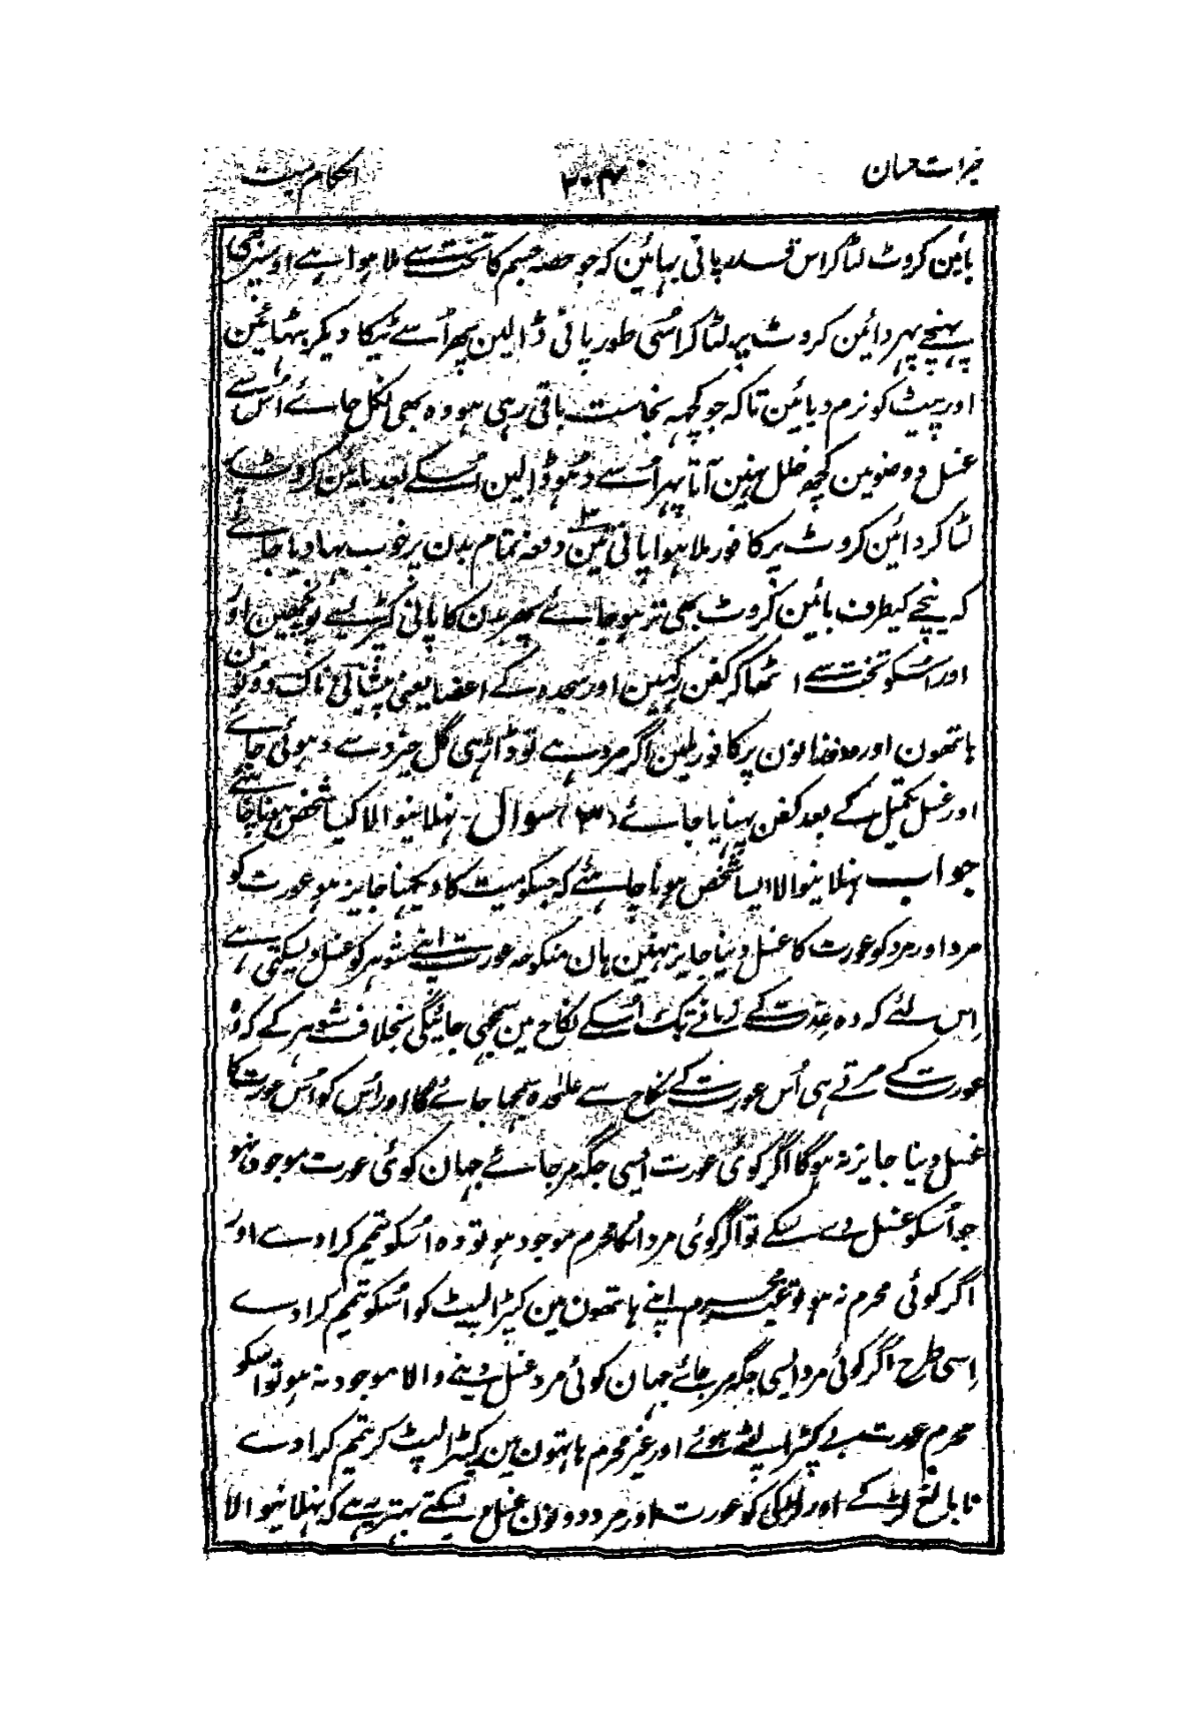 احکام میت ۲۰۴ خیرات حسان
بائین کروٹ لٹا کر اس قدر پانی بہائین کہ جو حصہ جسم کا تخت سے ملا ہوا ہے اوس
پہنچے پہر دائین کروٹ پر لٹا کر اُسی طور پانی ڈالین پھر اُسے ٹیکا دیکر بیٹھائین
اور پیٹ کو نرم دبائین تاکہ جو کچہہ نجاست باقی رہی ہو وہ بھی نکل جائے اُس سے
غسل و وضو مین کچھ خلل نہین آتا پہر اُسے دھو ڈالین اُسکے بعد بائین کروٹ پر
لٹا کر دائین کروٹ پر کافور ملا ہوا پانی تین دفعہ تمام بدن پر خوب بہا دیا جائے
کہ نیچے کیطرف بائین کروٹ بھی تر ہو جائے پھر بدن کا پانی کپڑیسے پونچھین اور
اور اُسکو تخت سے اٹھا کر کفن رکہین اور سجدہ کے اعضا یعنی پیشانی ناک دونون
ہاتھون اور پر کافور ملین اگر مرد ہے تو ڈاڑہی گل خیرو سے دہوئی جائے
اور غسل تکمیل کے بعد کفن پہنایا جائے (۳) سوال۔ نہلانیوالا کیسا شخص ہونا چاہئے
جواب نہلانیوالا ایسا شخص ہونا چاہئے کہ جسکو میت کا دیکہنا جایز ہو عورت کو
مرد اور مرد کو عورت کا غسل دینا جایز نہین ہان منکوحہ عورت اپنے شوہر کو غسل دیسکتی ہے
اِس لئے کہ وہ عِدت کے زمانے تک اُسکے نکاح مین سمجھی جائیگی بخلاف شوہر کے کہ وہ
عورت کے مرتے ہی اُس عورت کے نکاح سے علٰحدہ سمجہا جائے گا اور اُس کو اُس عورت کا
غسل دینا جایز نہ ہوگا اگر کوئی عورت ایسی جگہ مر جائے جہان کوئی عورت موجود نہو
جو اُسکو غسل دے سکے تو اگر کوئی مرد اُسکا محرم موجود ہو تو وہ اُسکو تیمم کرا دے اور
اگر کوئی محرم نہ ہو تو غیر محرم اپنے ہاتھون مین کپڑا لپیٹ کو اُسکو تیمم کرا دے
اِسی طرح اگر کوئی مرد ایسی جگہ مر جائے جہان کوئی مرد غسل دینے والا موجود نہ ہو تو اُسکو
محرم عورت بے کپڑا لپٹے ہوئے اور غیر محرم ہاتہون مین کپڑا لپٹ کر تیمم کرا دے
نابالغ لڑکے اور لڑکی کو عورت اور مرد دونون غسل دیسکتے بہتر یہ ہے کہ نہلانیوالا